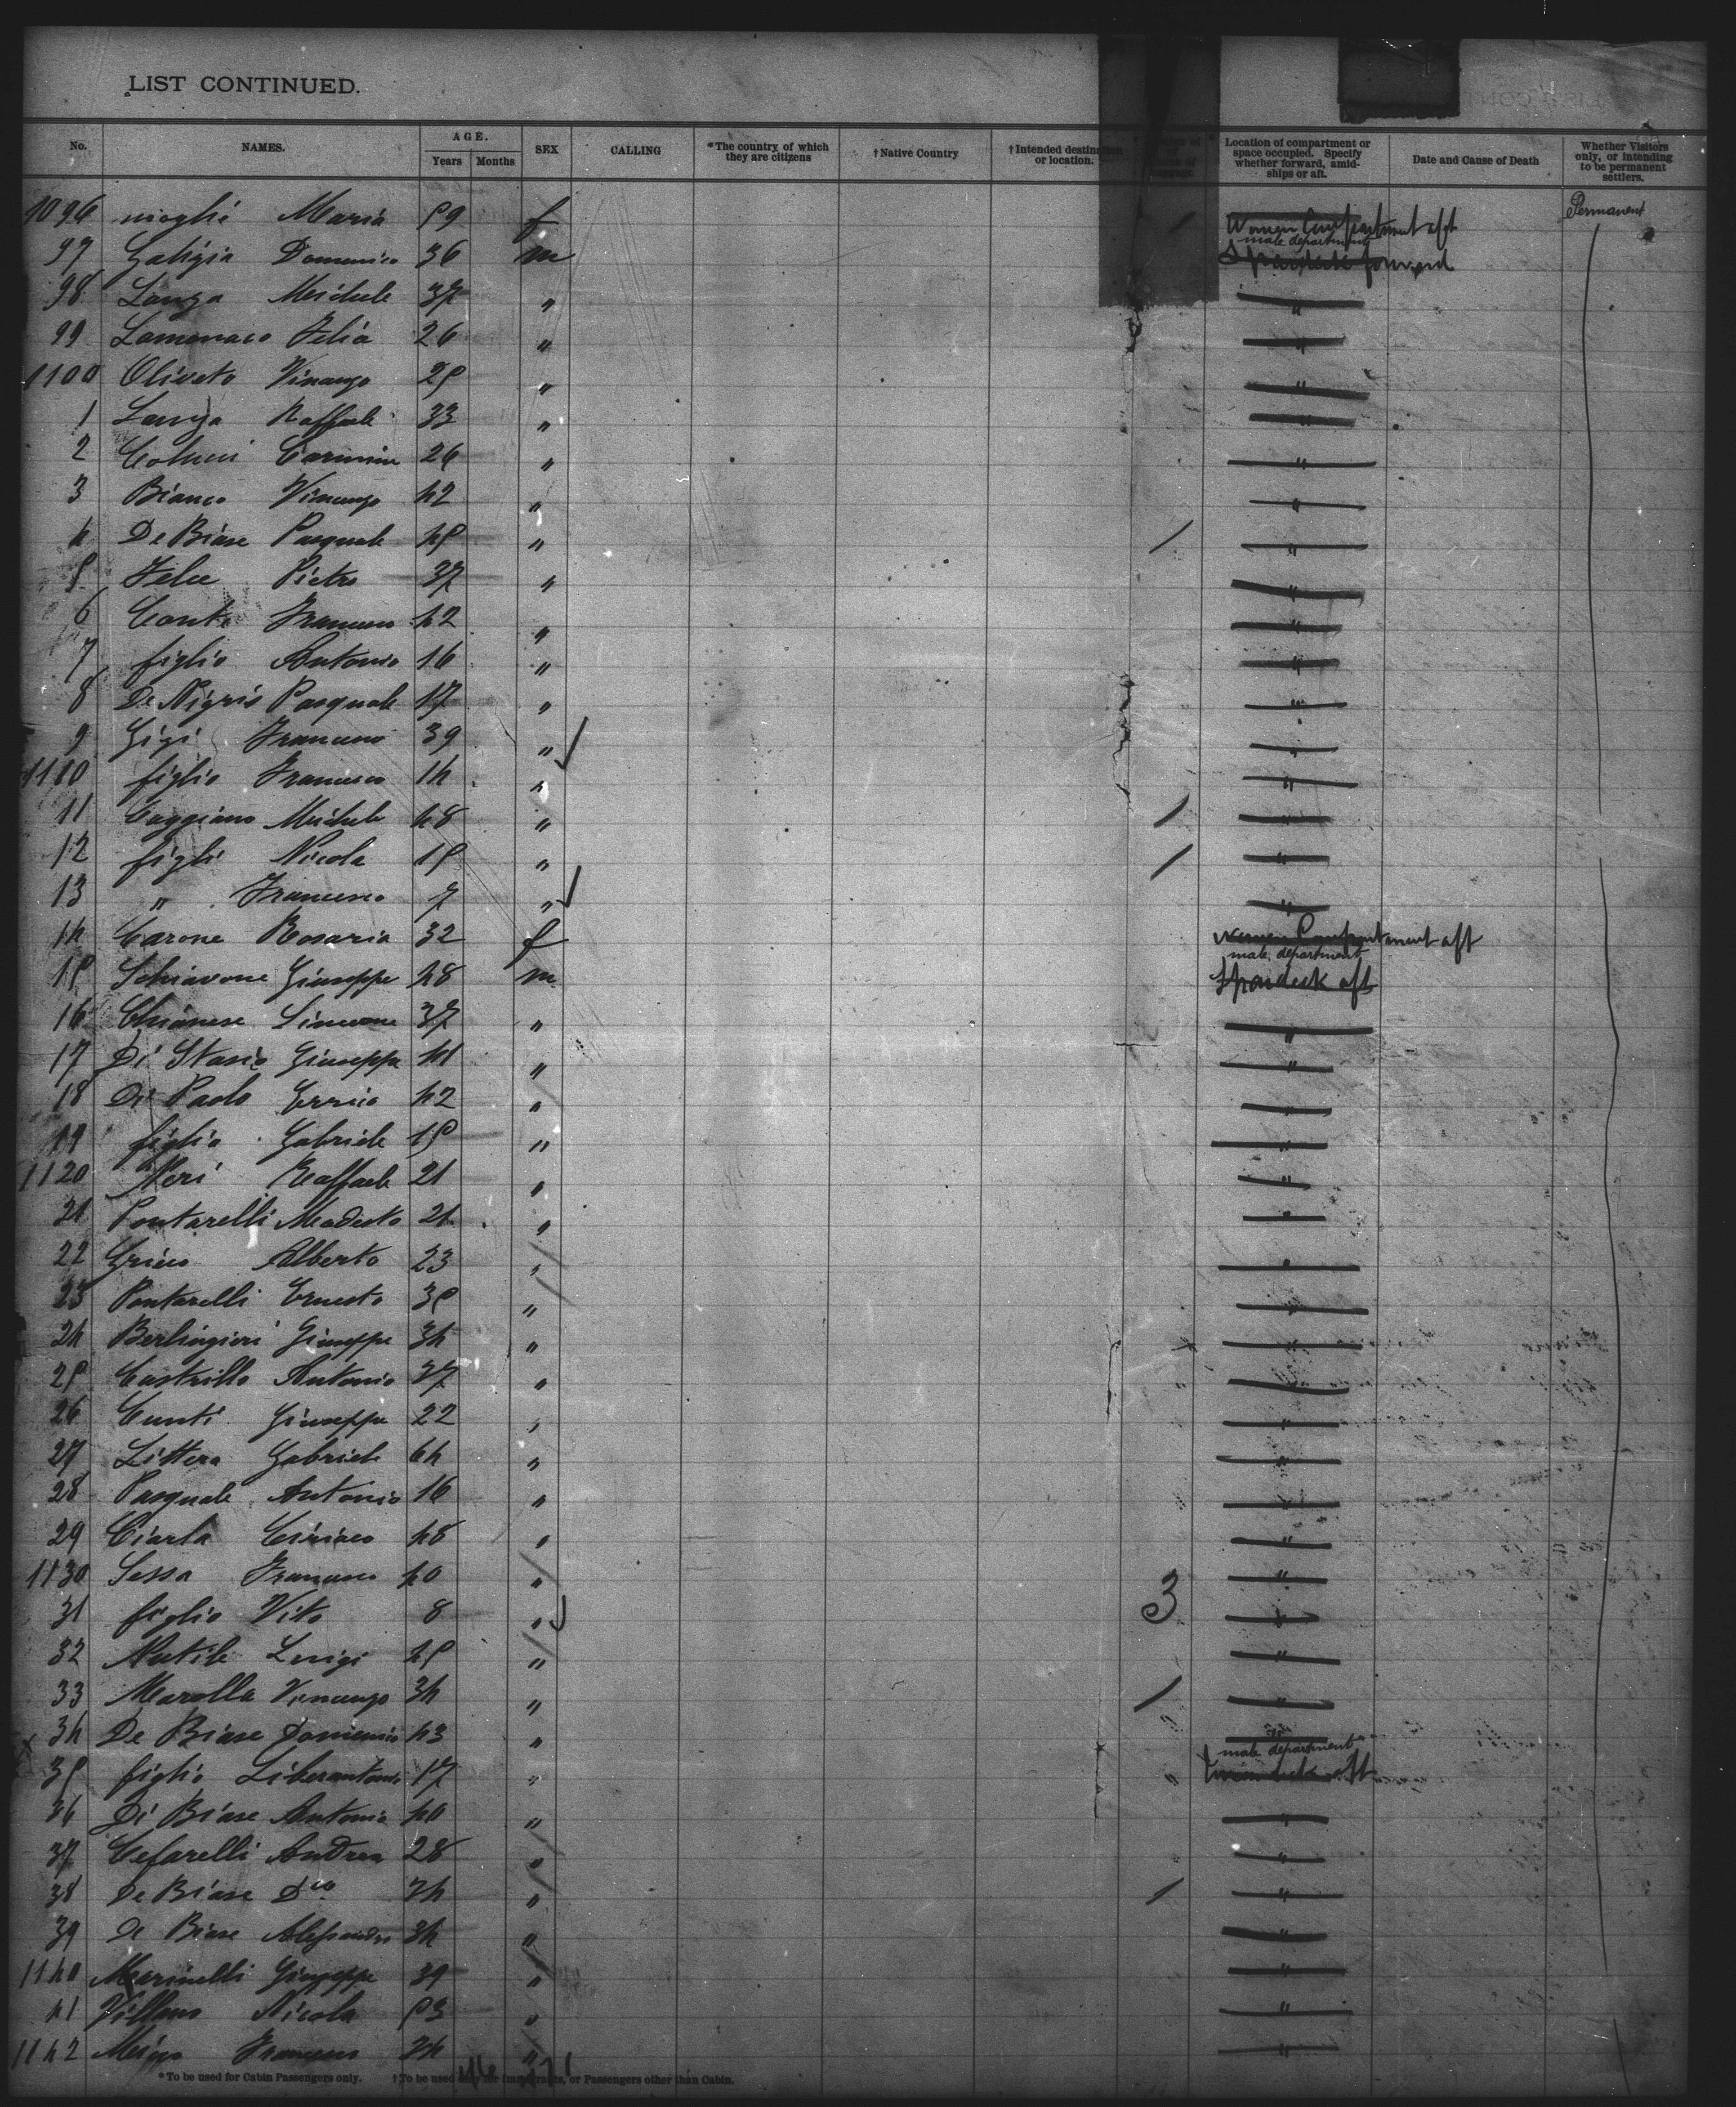 LIST CONTINUED.
No. NAMES. AGE. Years Months SEX CALLING *The country of which they are citizens †Native Country †Intended destination or location. Location of compartment or space occupied. Specify whether forward, amidships or aft. Date and Cause of Death Whether Visitors only, or intending to be permanent settlers.
1096 moglie Maria 59 f Women Compartment aft Permanent
male department
97 Domenico 36 m Spardeck forward
98 Lanza Michele 37 " "
99 Lomonaco Felia 26 " "
1100 Oliveto Vincenzo 25 " "
1 Lanza Raffaele 33 " "
2 Colucci Carmine 26 " "
3 Bianco Vincenzo 42 " "
4 De Biase Pasquale 45 " "
5 Felice Pietro 37 " "
6 Conte Francesco 42 " "
7 figlio Antonio 16 " "
8 De Nigris Pasquale 17 " "
9 Gigi Francesco 39 " "
1110 figlio Francesco 14 " "
11 Caggiano Michele 48 " "
12 figli Nicola 15 " "
13 " Francesco 7 " "
14 Carone Rosaria 32 f women Compartment aft
male department
15 Schiavone Giuseppe 48 m Spardeck aft
16 Chianese Simeone 37 " "
17 Di Stasio Giuseppe 41 " "
18 Di Paolo Errico 42 " "
19 figlio Gabriele 15 " "
1120 Neri Raffaele 21 " "
21 Pontarelli Modesto 21 " "
22 Grieco Alberto 23 " "
23 Pontarelli Ernesto 35 " "
24 Berlingieri Giuseppe 34 " "
25 Castrillo Antonio 37 " "
26 Cunti Giuseppe 22 " "
27 Littera Gabriele 64 " "
28 Pasquale Antonio 16 " "
29 Ciarla Ciriaco 48 " "
1130 Sessa Francesco 40 " "
31 figlio Vito 8 " 3 "
32 Natile Luigi 45 " "
33 Marolla Vincenzo 34 " "
34 De Biase Domenico 43 " "
male department
35 figlio Liberantonio 17 " aft
36 Di Biase Antonio 40 " "
37 Cefarelli Andrea 28 " "
38 De Biase Dco " "
39 De Biase Alessandro 34 " "
1140 Marinelli Giuseppe 39 " "
41 Villano Nicola 53 " "
1142 Francesco 24 " "
*To be used for Cabin Passengers only. †To be used only for Immigrants, or Passengers other than Cabin.